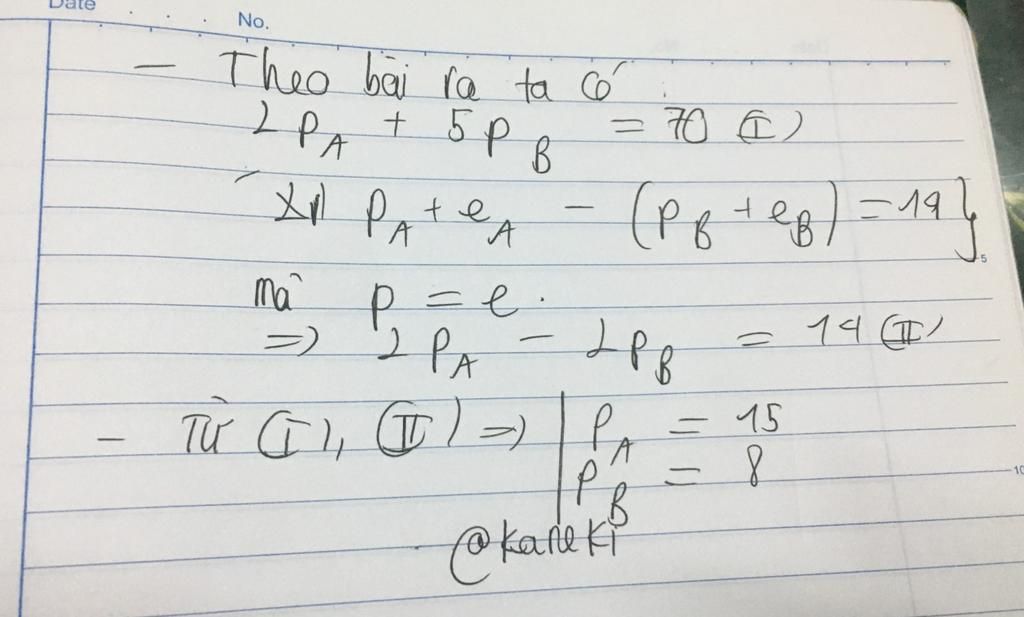 Date
No.
– Theo bài ra ta có :
2 P_A + 5 P_B = 70 (I)
P_A + e_A – (P_B + e_B) = 14 }
5
mà P = e .
=> 2 P_A – 2 P_B = 14 (II)
– Từ (I), (II) => | P_A = 15
P_B = 8
10
@kaneki